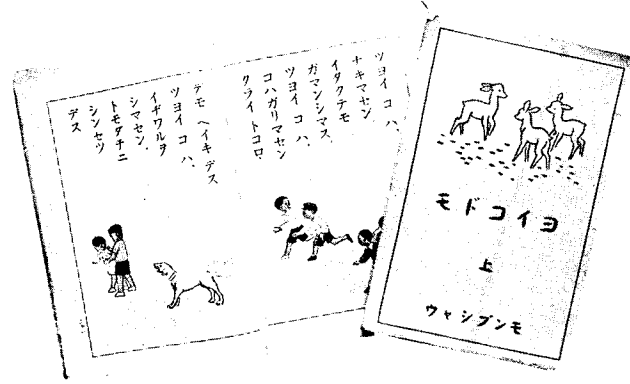 ツヨイ コ ハ、
ナキマセン
イタクテモ
ガマンシマス。
ツヨイ コ ハ、
コハガリマセン
クライ トコロ
デモ ヘイキ デス
ツヨイ コ ハ、
イヂワルヲ
シマセン、
トモダチニ
シンセツ
デス
ヨイコドモ
上
モンブシャウ